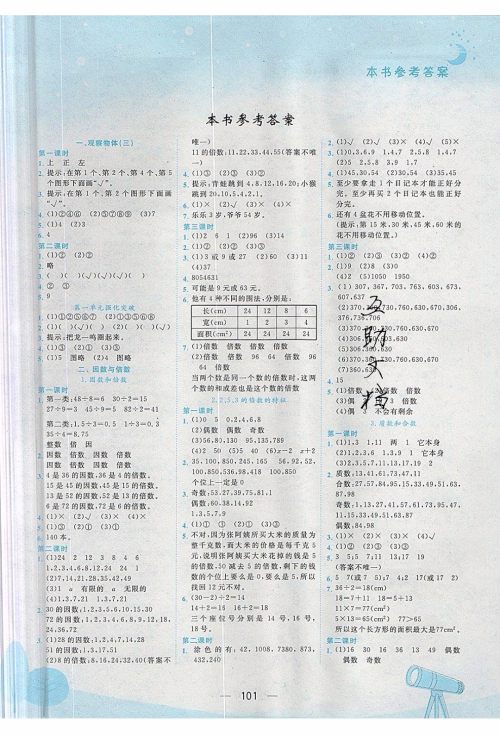 本书参考答案
本书参考答案
一、观察物体(三)
第一课时
1. 上 正 左
2. 提示:在第1个、第2个、第4个、第5
个图形下面画“√”。
3. 提示:在第1个、第2个图形下面画
“√”。
4. (1)②④⑥ (2)①⑤⑦⑧ (3)⑦
5. (1)4 (2)3
第二课时
2. 略
②
第一单元强化突破
3. 提示:把龙一鸣圈起来。
4. (1)③ (2)① (3)①
5. (1)5 图略 (2)4 图略
二、因数与倍数
1.因数和倍数
第一课时
1. 第一类:48÷8=6 30÷2=15
27÷9=3 45÷9=5 82÷41=2
35÷4=8.75
整数 倍数
2. 因数 倍数 因数 倍数
倍数 因数 因数 倍数
3. 4是36的因数,36是4的倍数。
15是45的因数,45是15的倍数。
13是52的因数,52是13的倍数。
6是72的因数,72是6的倍数。
4. (1)× (2)√ (3)× (4)×
5. (1)③ (2)① (3)①
6. 140本。
第二课时
1. (1)24 12 3 8 4 6
1.2.3.4.6.8.12.24 24
(2)7.14.21.28.35.42.49
(3)1 a 有限的 a 无限的
(4)1.3.7.21 1.3.7.21
2. 30的因数:1.2.3.5.6.10.15.30
72的因数:1.2.3.4.6.8.9.12.18.
24.36.72
3. (1)28的因数:1.2.4.7.14.28
51的因数:1.3.17.51
(2)8的倍数:8.16.24.32.40(答案不
唯一)
11的倍数:11.22.33.44.55(答案不唯一)
4. (1)① (2)② (3)③
5. 提示:青蛙跳到4.8.12.16.20;小猴
跳到20.10.5.4.2.1。
6. (1)× (2)√ (3)× (4)×
7. 乐乐3岁,爷爷54岁。
第三课时
1. (1)2 6 1 (2)96 (3)14
2. (1)② (2)② (3)③
3. (1)3或9或27 (2)60 (3)11
(4)37
4. 8054631
5. 可能是9元或63元。
6. 他有4种不同的围法,分别是:
长(cm) 24 12 8 6
宽(cm) 1 2 3 4
面积(cm²) 24 24 24 24
7. (1)倍数 倍数 倍数 倍数
(2)倍数 倍数 96 64 倍数 96
64 倍数
当两个数是同一个数的倍数时,这两
个数的和或差也是这个数的倍数
2.2、5、3的倍数的特征
第一课时
1. (1)0 5 0.2.4.6.8
(2)偶数 偶数 奇数
(3)56.80.130 95.135.789
(4)2 50 (5)5 40 (6)x-2 x+2
2. 35.100.850.245.165 56.92.52.
100.850.536.98.418 100.850
个位上一定是0
3. 奇数:53.27.39.75.81.1
偶数:60.38.14.92
1.3.5.7.9
4. (1)① (2)② (3)③
5. 不对,因为张阿姨所买大米的质量为
整千克数,而大米的价格是每千克5
元,说明张阿姨买大米花掉的钱是5
的倍数,50减去5的倍数,剩下的钱
数的个位上要么是0,要么是5,所以
找回12元不对。
6. (30-2)÷2=14
14+2=16 16+2=18
三个座位号分别是14号、16号、
18号。
第二课时
1. 涂色的有:42、1008、7380、873、
432、240
2. (1)√ (2)√ (3)× (4)√ (5)×
4. (1)45.30.54 (2)30.54 (3)35.45
5. 至少要拿走1个日记本才能正好分
完。至少再买2个日记本也能正好
分完。
6. 还有4盆花不用移动位置。
(提示:第15米、30米、45米、60米的
花不用移动位置。)
第三课时
1. (1)② (2)① (3)③
2. (1)9 (2)8 (3)0
4. 15
3.质数和合数
第一课时
1. (1)1.3 1.11 两 1 它本身
(2)1.2.3.6 1.3.9 1 它本身
(3)2.3.5.7.11.13.17.19 2
2. 质数:13.41.61.73.47.11
合数:27.57.84.95.15.33.49.51.63.
87.98
奇数:1.13.27.41.57.61.73.95.47.
11.15.33.49.51.63.87
偶数:84.98
3. (1)② (2)③ (3)①
4. 3 5;5 7;11 13;17 19
(答案不唯一)
6. 5 7(或7 5);4;2 17(或17 2)
7. 36÷2=18(cm)
18=7+11 18=5+13
11×7=77(cm²)
5×13=65(cm²) 77>65
所以这个长方形的面积最大是77cm²。
第二课时
1. (1)16 30 16 36 13 49 偶数
偶数 奇数
互助文档
101